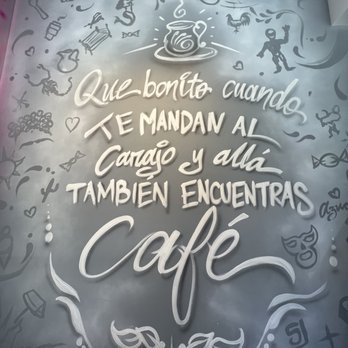 Que bonito cuando
TE MANDAN AL
Carajo y allá
TAMBIÉN ENCUENTRAS
Café